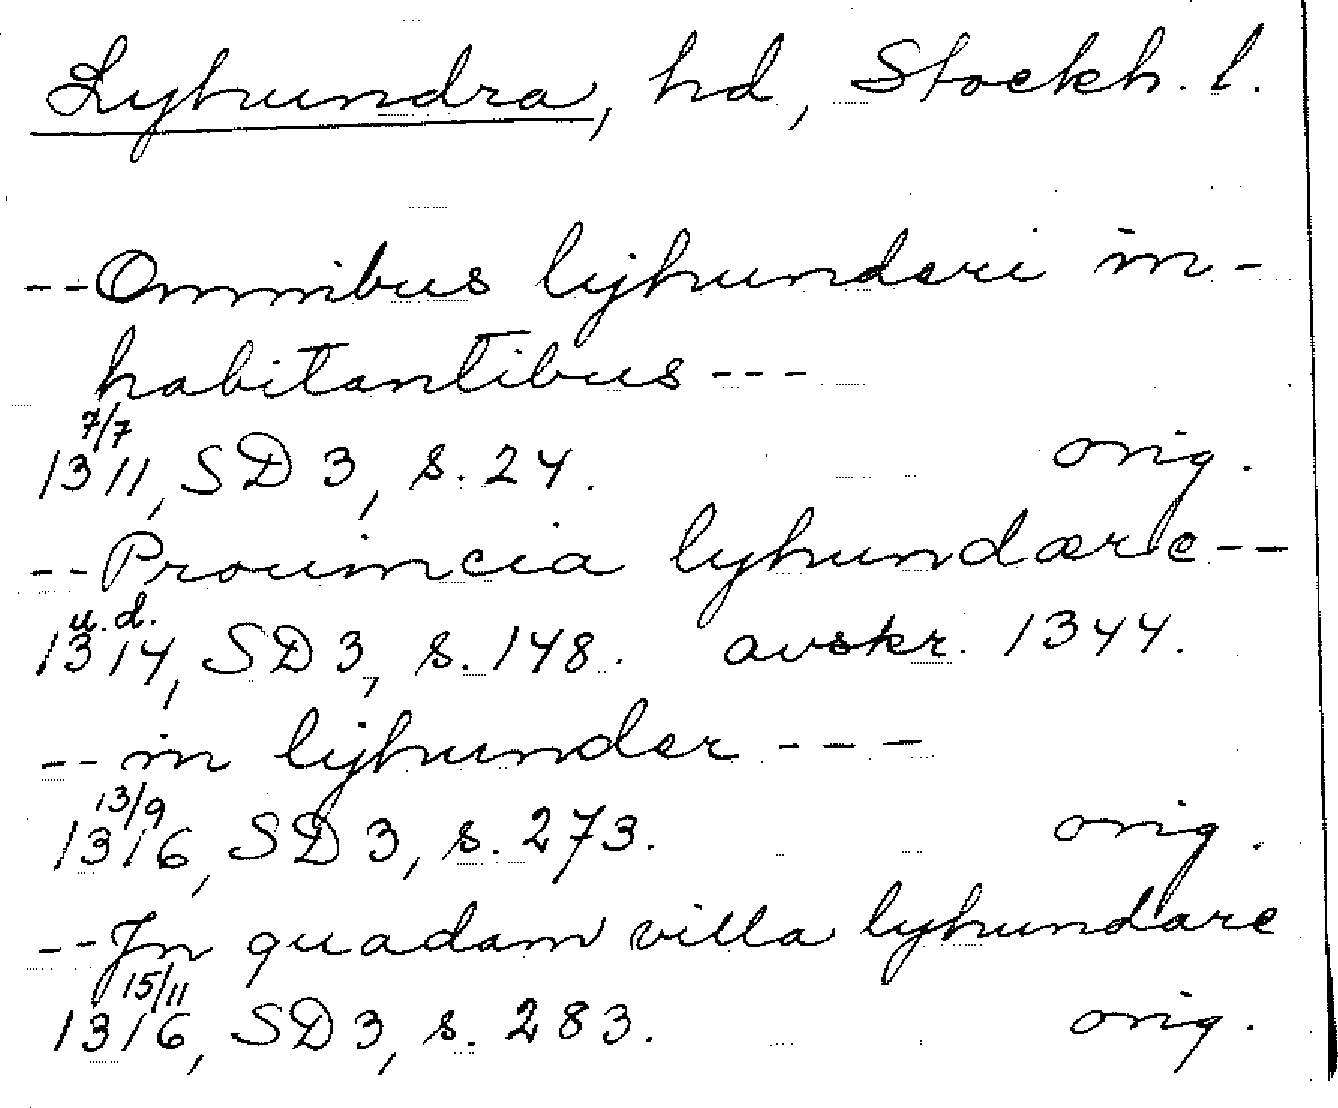 Lyhundra, hd, Stockh. l.
--Omnibus lyhunderi in-
habitantibus---
7/7
1311, SD 3, s. 24. orig.
--Prouincia lyhundære--
u. d.
1314, SD 3, s. 148. avskr. 1344.
--in lyhunder---
13/9
1316, SD 3, s. 273. orig.
--Jn quadam villa lyhundare
15/11
1316, SD 3, s. 283. orig.